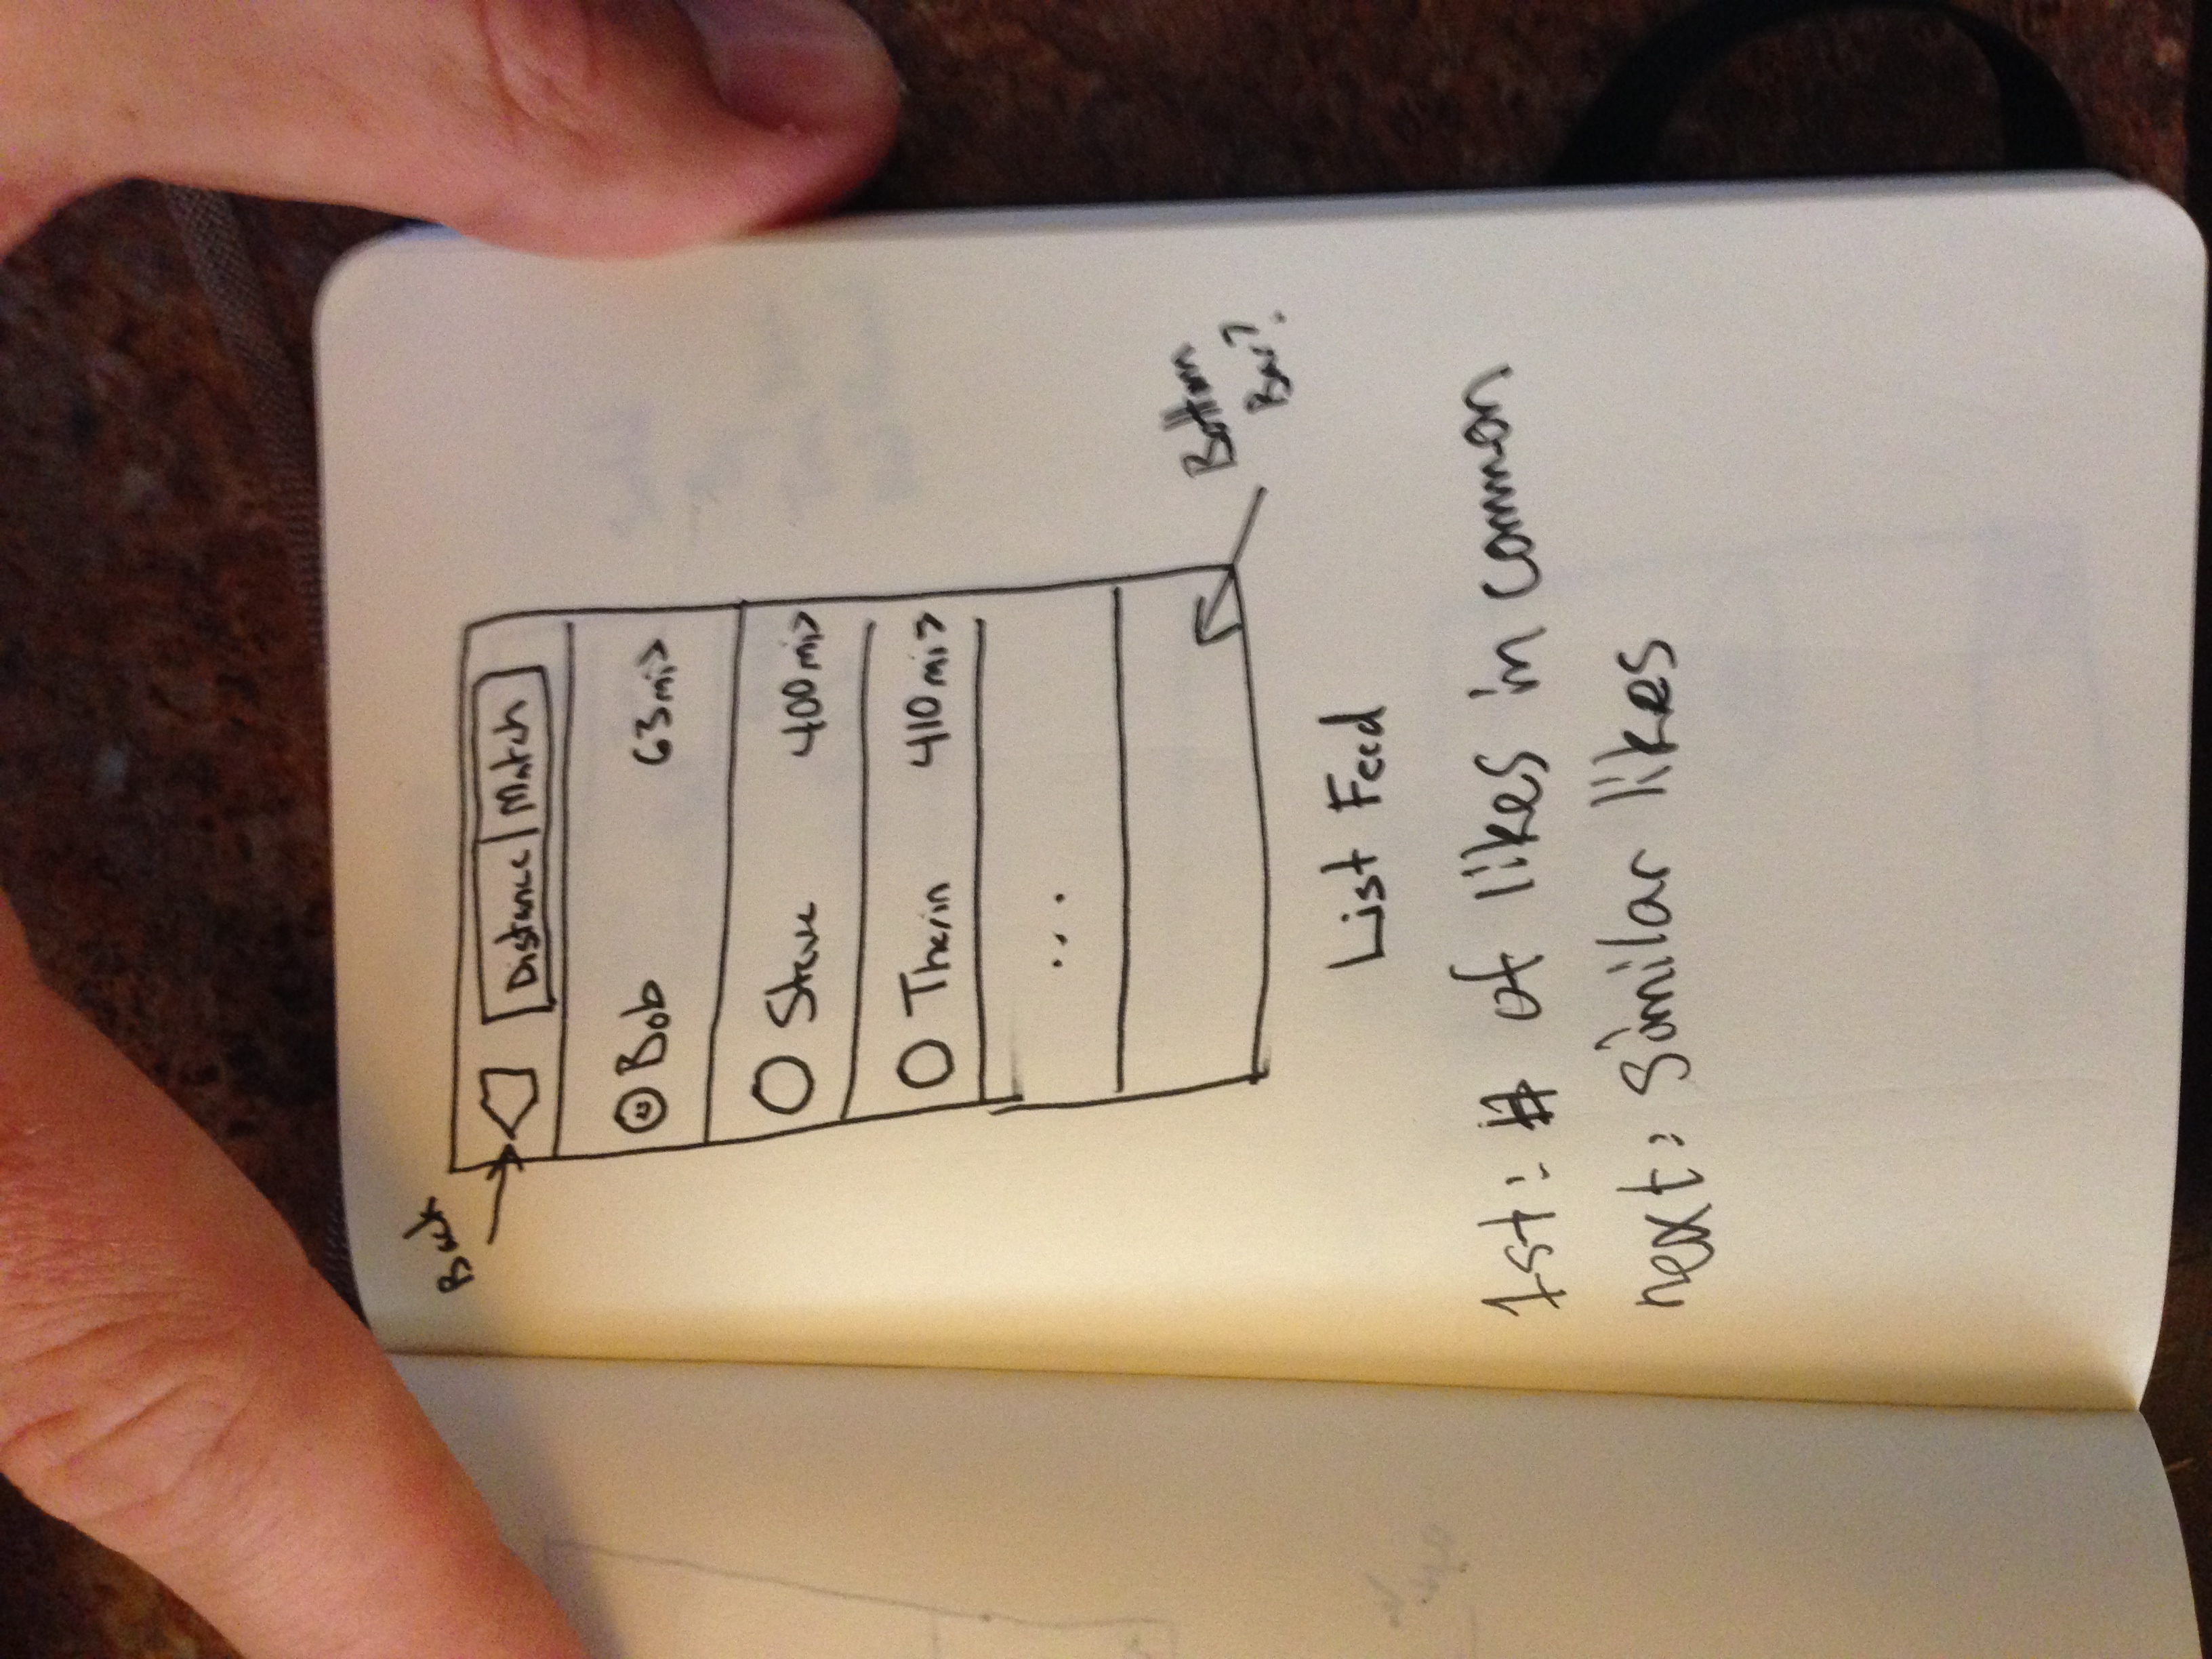 Back
Distance | Match
Bob 63mi>
Steve 400mi>
Therin 410mi>
...
Bottom
Bar?
List Feed
1st: # of likes in common
next: similar likes